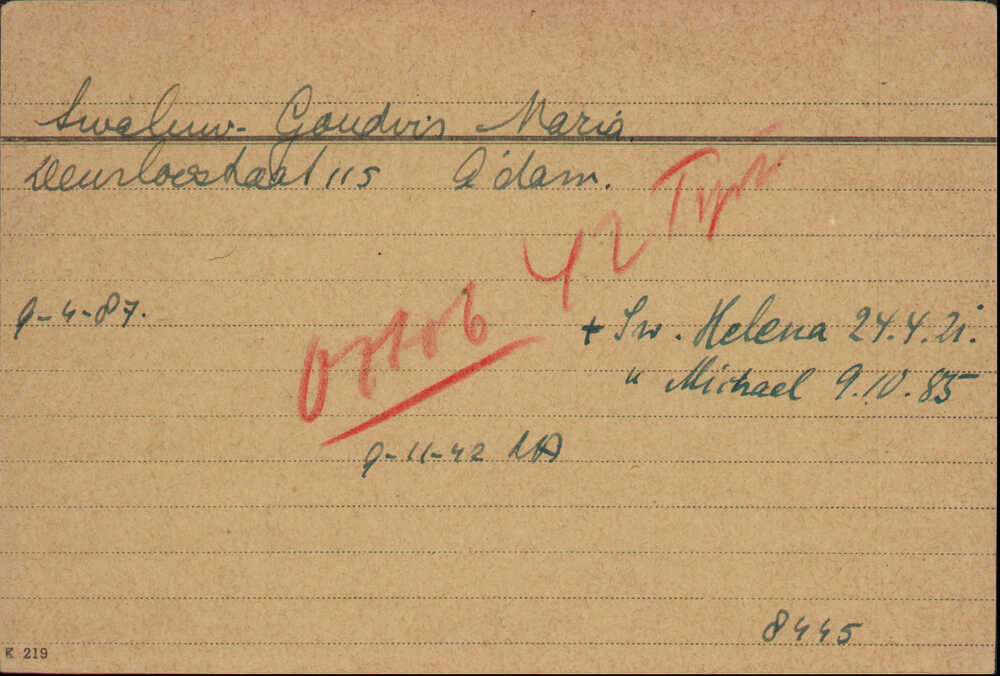 Swaluw- Goudvis Maria.
Deurloostraat 115 A'dam.
42 Typ
9-4-87.
Oktob
+ Sw. Helena 24.4.21.
" Michael 9.10.85
9-11-42 LA
8445
K 219